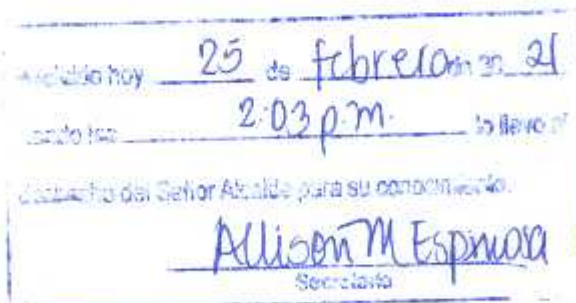 Recibido hoy 25 de febrero de 20 21
siendo las 2:03 p.m. lo llevo al
despacho del Señor Alcalde para su conocimiento.
Allison M Espinosa
Secretaria